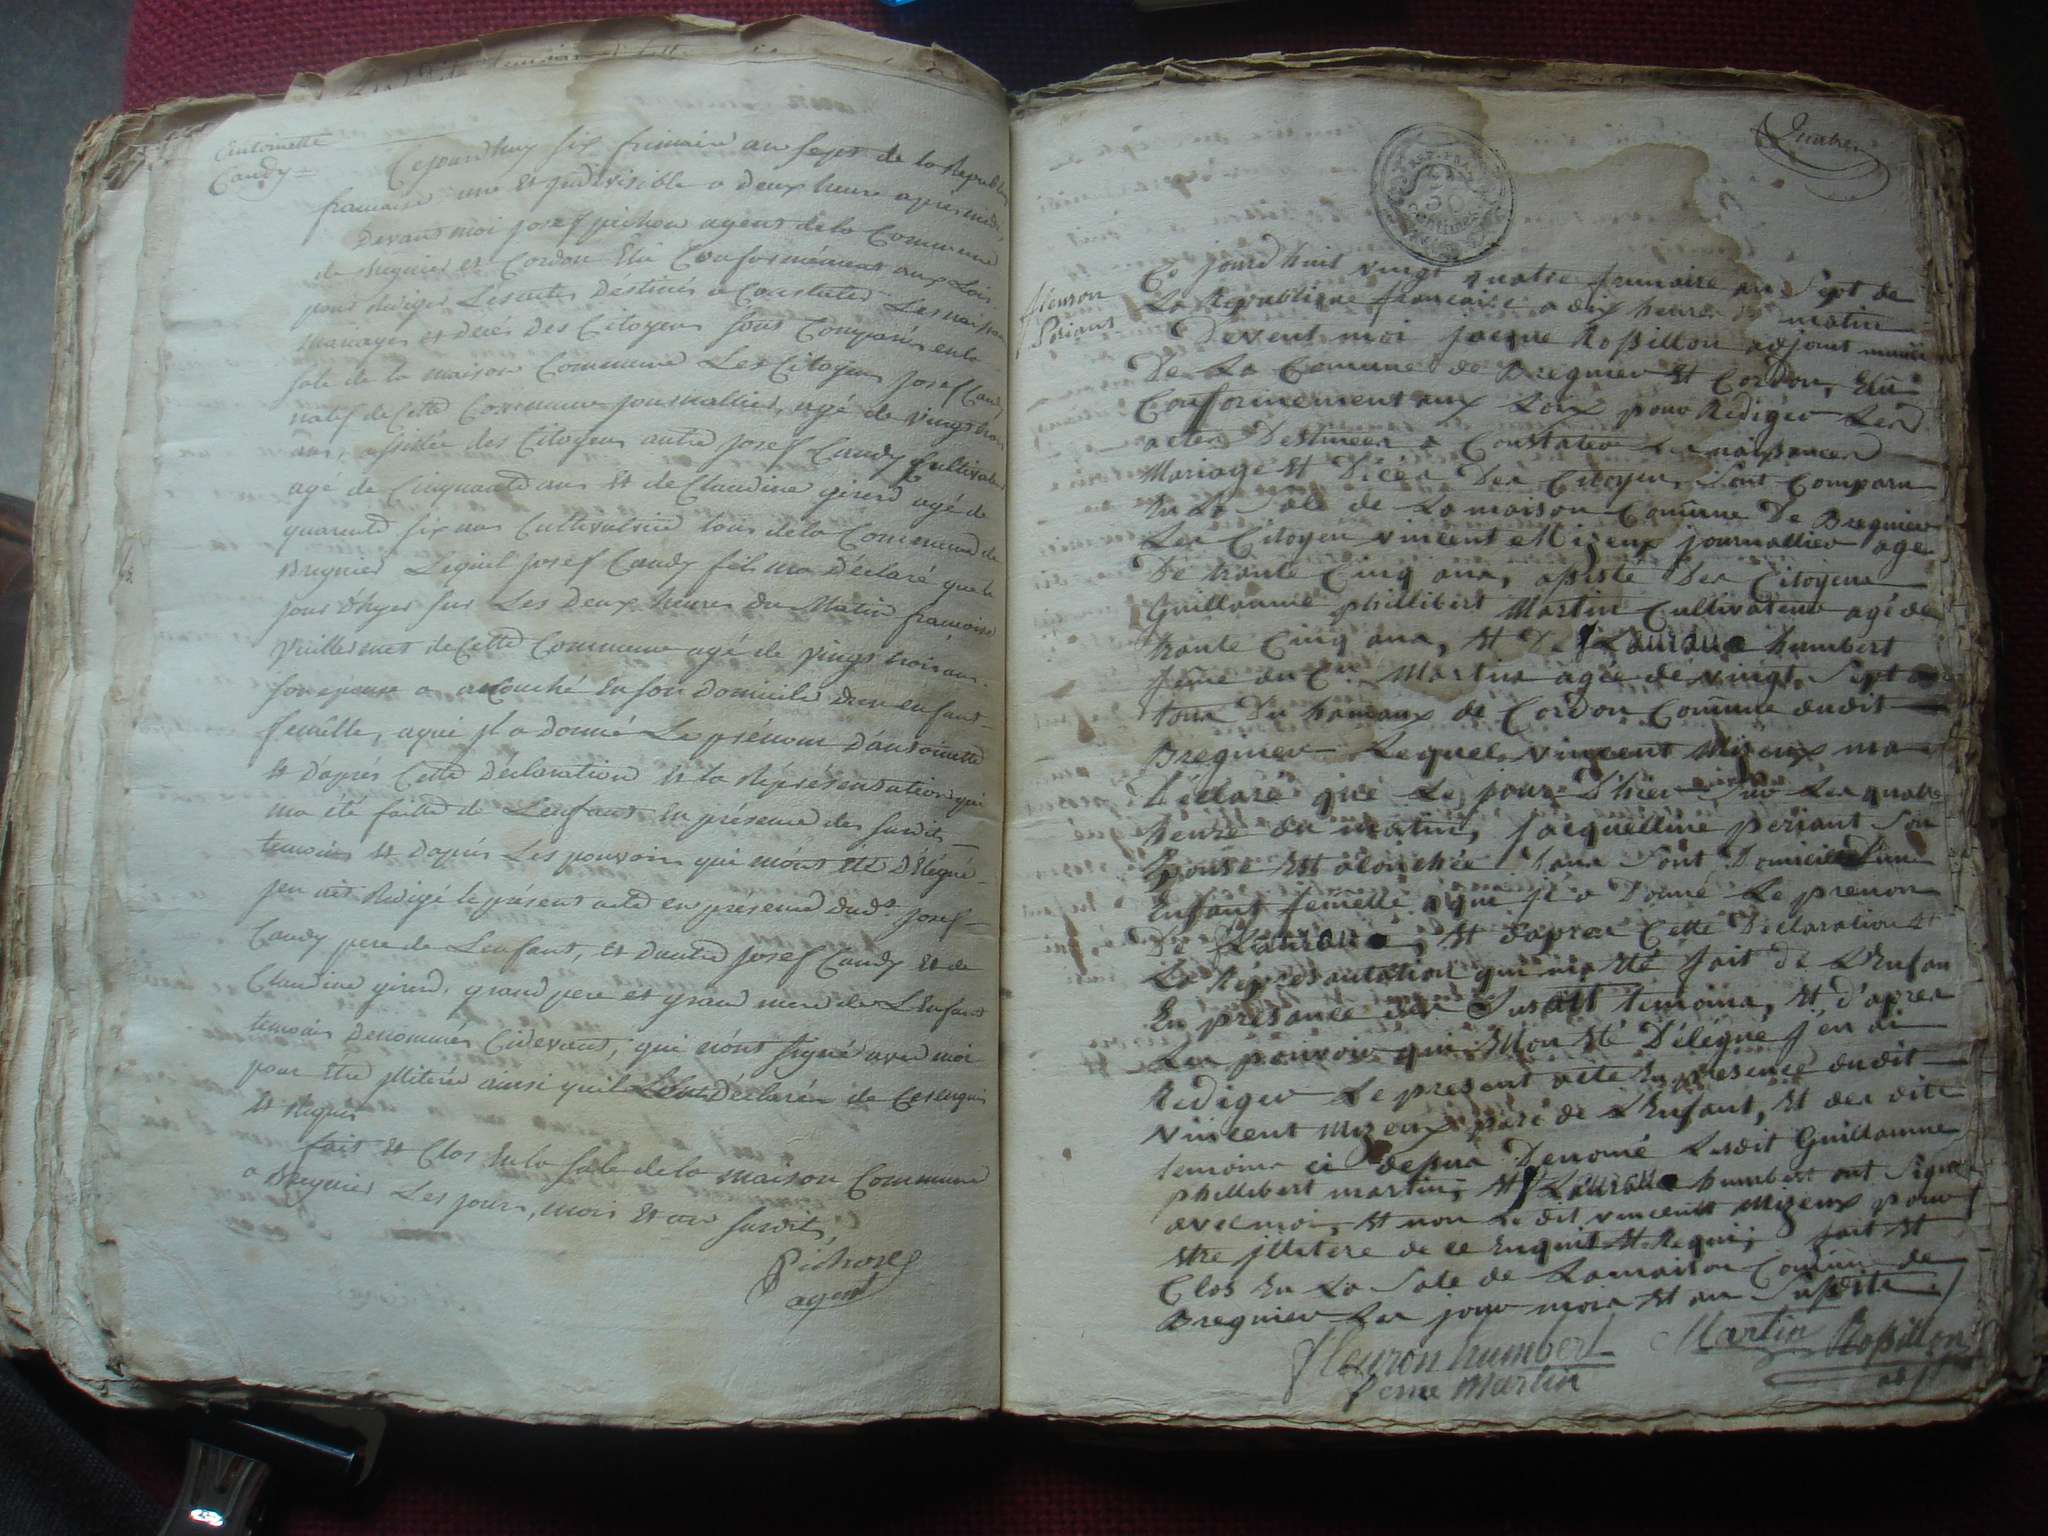 Antoinette
Candy
Cejourdhuy six frimaire an sept de la Republi
francaise une et jndivisible a deux heure apres midi,
Devant moi josef pichon agent de la Commune
de Bregnier et Cordon Elû Conformément aux Lois
pour Rediger Les actes Destinés a Constater Les naissances
Mariages et decés des Citoyens sont Comparus en la
sale de la maison Commune Les Citoyens josef Candy
natif de Cette Commune journallier, agé de vingt trois
ans, assistée des Citoyens autre josef Candy Cultivateur
agé de Cinquante ans et de Claudine girerd agé de
quarente six ans Cultivatrice tous de la Commune de
Bregnier Lequel josef Candy fils ma Déclaré que le
jour d'hyer sur Les Deux heures du Matin francoise
de Cette Commune agé de vingt trois ans
son epouse a acouché En son Domicile d'un enfant
femelle, aqui jl a donné Le prénom d'antoinette
Et d'aprés Cette Déclaration Et la Réprésentation qui
ma été faitte de Lenfant En présence des susdits
temoins Et d'aprés Les pouvoirs qui m'ont été Délégué
jen ait Rédigé le présent acte en presence dud.t josef
Candy pere de Lenfant, Et d'autre josef Candy Et de
Claudine girerd, grand pere et grand mere de L'Enfant
temoins Denommés Cidevant, qui n'ont signé avec moi
pour Etre jlliterée ainsi qu'il Lont Déclarée de Ce enquis
Et Requis
fait Et Clos En la sale de la maison Commune
a Bregnier Les jours, mois Et an susdit,
Pichon
agent
Quatre
fleuron
Periant
Ce jourd huit vingt quatre frimaire an Sept de
La Republique francaise a dix heure matin
Devent moi jacque Ropillon adjoint muni
De La Comune de Bregnier Et Cordon, Elû
Conformement aux Loix pour Rediger Les
actes Destinées a Constater Les naissances
Mariage Et Décés Des Citoyen, Sont Comparu
En La Sale de La maison Comune De Bregnier
Les Citoyen vincent Mizeux journallier age
De trante Cinq ans, asisté Des Citoyens
Guillaume phillibert Martin Cultivateur agé de
trante Cinq ans, Et De humbert
feme du C.en Martin agée de vingt Sept ans
tous Du hamaux de Cordon Comune dudit
Bregnier Lequel vincent Mizeux ma
Déclaré que Le jour D'hier Sur Les quatre
heure du matin, jacquelline periant Son
Epouse Est acouchée Dans Sont Domicile D'une
Enfant femelle aqui jl a Donné Le prenon
De Et d'apres Cette Déclaration Et
La Représantation qui ma Eté fait de L'Enfan
En présance des Susdit temoins, Et d'apres
Les pouvoir qui Mon Eté Délégué j'en ai
Rediger Le présent acte En presence dudit
vincent Mizeux pére de L'Enfant, Et des dite
temoins ci desus Denomé Lesdit Guillaume
phillibert martin, Et humbert ont Signé
avec moi, Et non Le dit vincent Mizeux pour
Etre jlletére de ce Enquit Et Requi, fait Et
Clos En La Sale de La maison Comune de
Bregnier Les jour mois Et an Susdite
fleuron humbert Martin Ropillon
feme Martin adjt